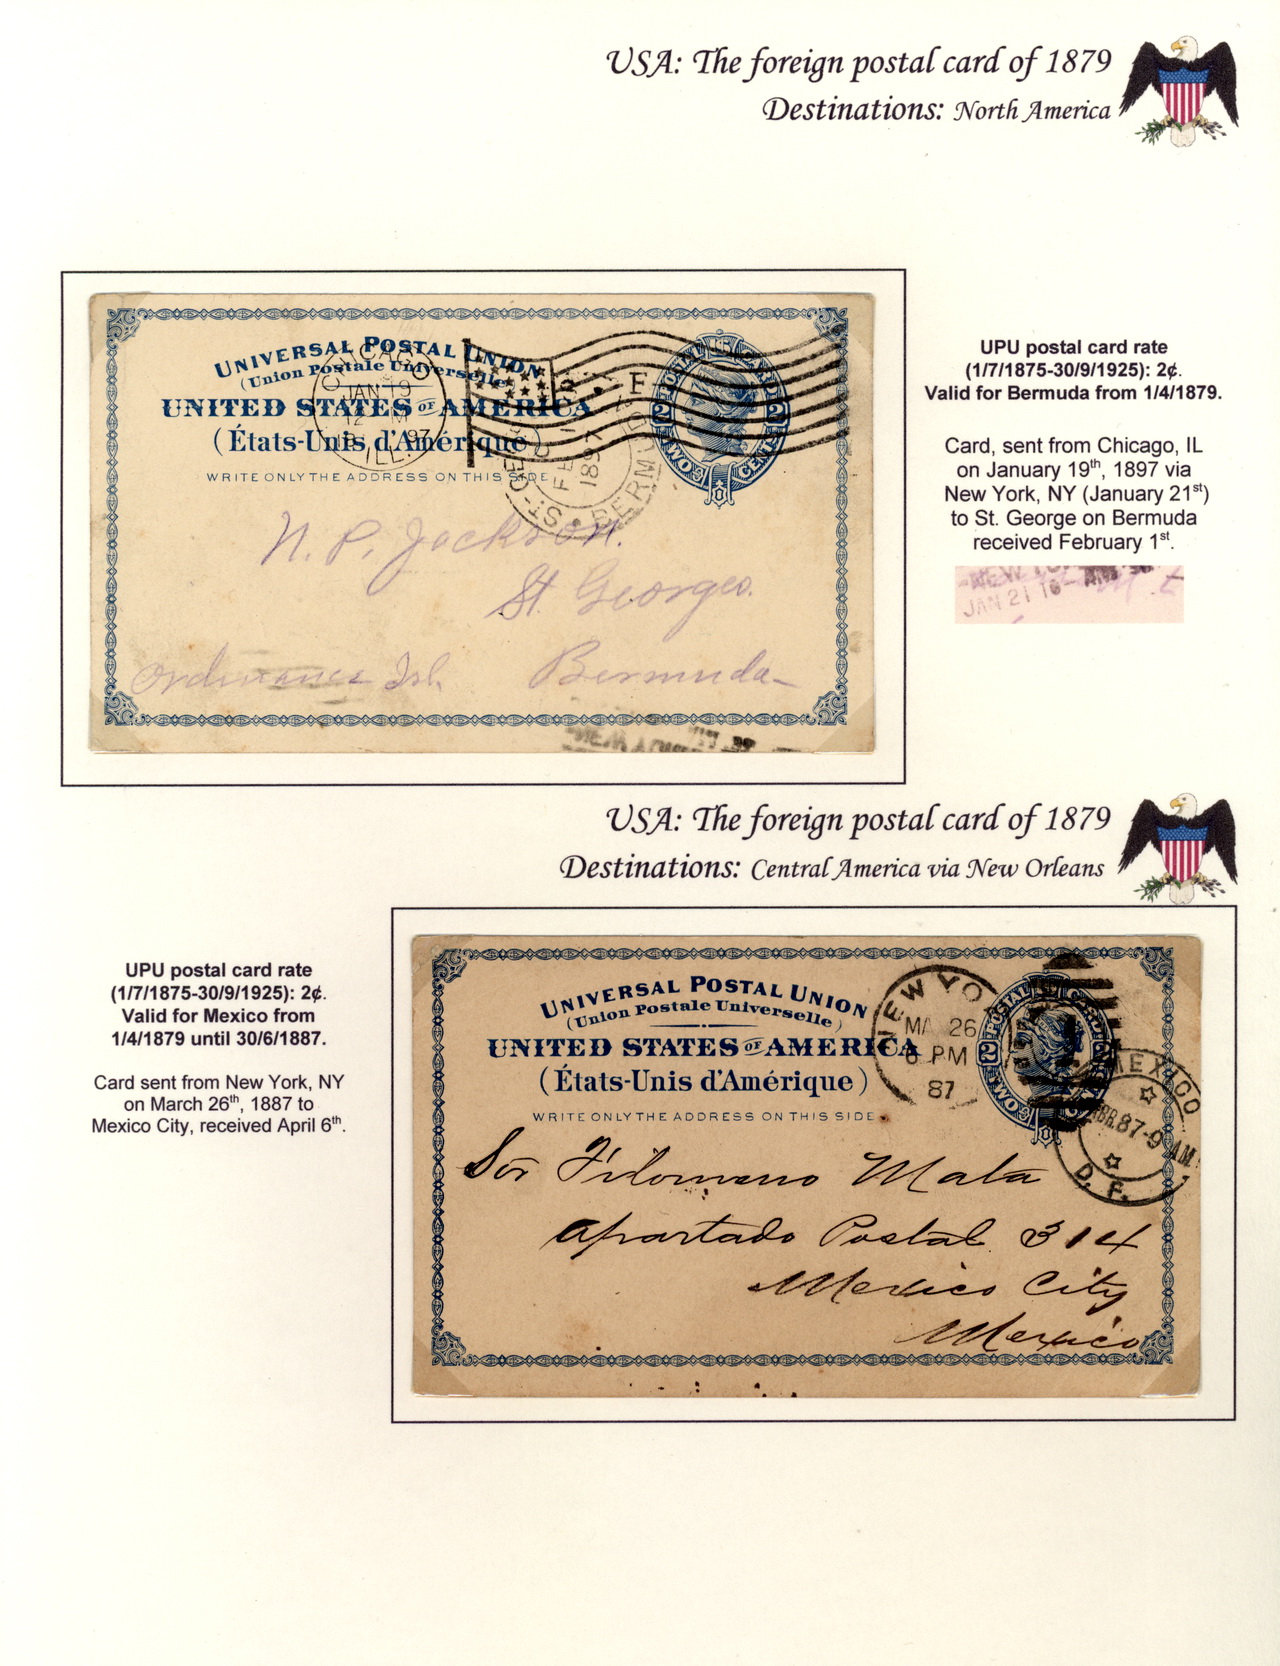 USA: The foreign postal card of 1879
Destinations: North America
UNIVERSAL POSTAL UNION
(Union Postale Universelle)
UNITED STATES OF AMERICA
(États-Unis d'Amérique)
WRITE ONLY THE ADDRESS ON THIS SIDE
CHICAGO
JAN 19
97
ILL.
POSTAL CARD
2 2
TWO CENTS
F
ST. GEORGES
FE 1
1897
BERMUDA
N. P. Jackson.
St. Georges.
Ordinance Isl. Bermuda
UPU postal card rate
(1/7/1875-30/9/1925): 2¢.
Valid for Bermuda from 1/4/1879.
Card, sent from Chicago, IL
on January 19th, 1897 via
New York, NY (January 21st)
to St. George on Bermuda
received February 1st.
NEW YO
JAN 21 10
USA: The foreign postal card of 1879
Destinations: Central America via New Orleans
UPU postal card rate
(1/7/1875-30/9/1925): 2¢.
Valid for Mexico from
1/4/1879 until 30/6/1887.
Card sent from New York, NY
on March 26th, 1887 to
Mexico City, received April 6th.
UNIVERSAL POSTAL UNION
(Union Postale Universelle)
UNITED STATES OF AMERICA
(États-Unis d'Amérique)
WRITE ONLY THE ADDRESS ON THIS SIDE
NEW YO
MA 26
6 PM
87
POSTAL CARD
2
MEXICO
ABR. 87-9 AM
D. F.
Sor Filomeno Mata
Apartado Postal 314
Mexico City
Mexico